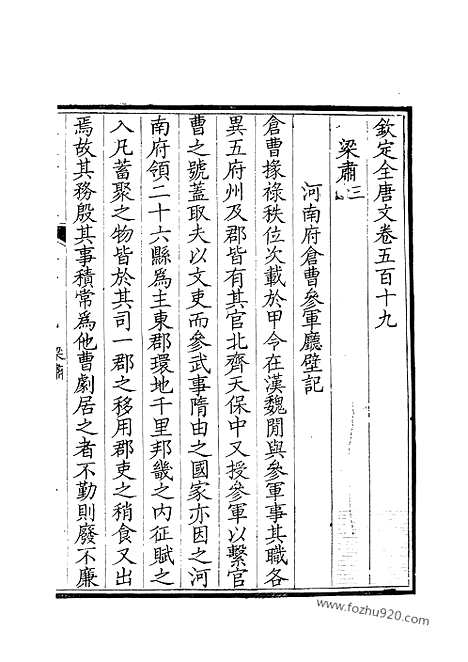 欽定全唐文卷五百十九
梁肅三
河南府倉曹參軍廳壁記
倉曹掾祿秩位次載於甲令在漢魏閒與參軍事其職各
異五府州及郡皆有其官北齊天保中又授參軍以繫官
曹之號蓋取夫以文吏而參武事隋由之國家亦因之河
南府領二十六縣為主東郡環地千里邦畿之內征賦之
入凡蓄聚之物皆於其司一郡之移用郡吏之稍食又出
焉故其務殷其事積常為他曹劇居之者不勤則廢不廉
梁肅
www.fozhu920.com